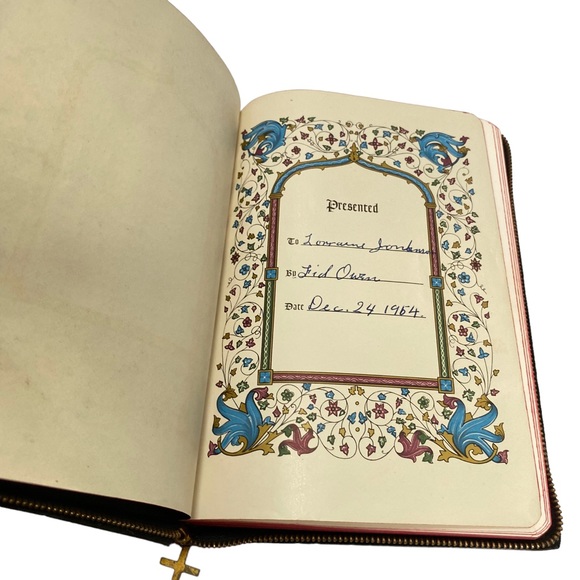 Presented
To Lorraine
By Owen
Date Dec. 24 1964.